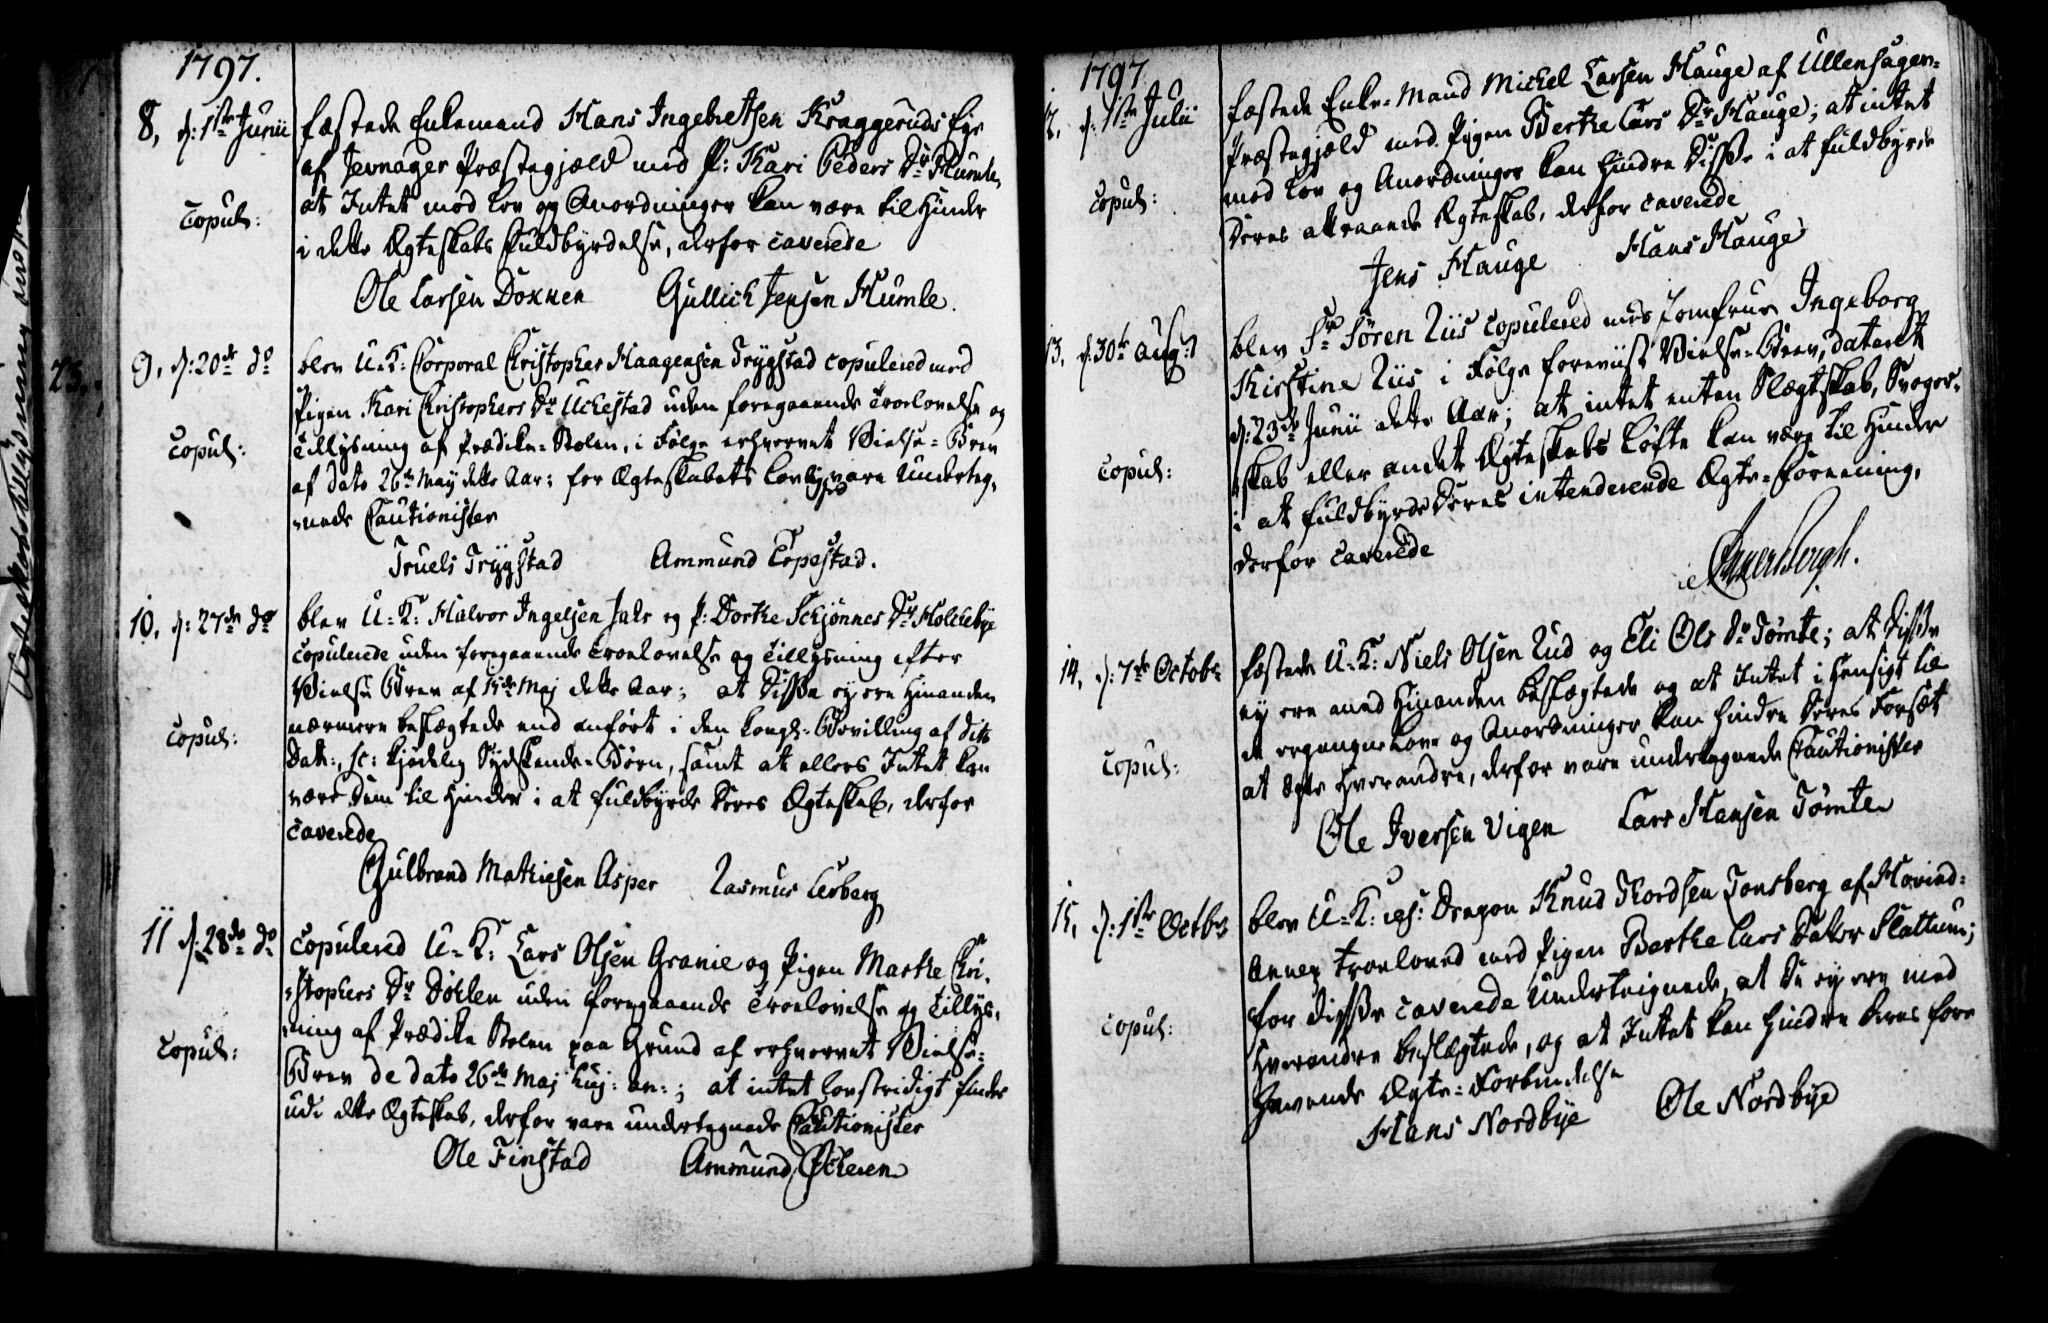 1797.
8, d: 1ste Junii fæstede Enkemand Hans Ingebretsen Kraggeruds Eje
af Jevnager Præstegjæld med P: Kari Peders Dr Humle,
at Intet mod Lov og Anordninger kan være til Hinder
Copul:
i dette Ægteskabs Fuldbyrdelse, derfor caverede
Ole Larsen Doxnen Gullich Jensen Humle.
9, d: 20de do blev U-K: Corporal Christopher Haagensen Trygstad copulered med
Pigen Kari Christophers Dr Uchestad uden foregaaende Troelovelse og
Tillysning af Prædike-Stolen, i Følge erhvervet Vielse-Brev
Copul:
af Dato 26de Maij dette Aar; for Ægteskabets vare Underteg-
-nede Cautionister
Truels Trygstad Ammund Topestad.
10, d: 27de do blev U-K: Halvor Ingelsen Jahr og P: Dorthe Schjønnes Dr Holchebye
copulerede uden foregaaende Troelovelse og Tillysning efter
Vielse Brev af 15de Maj dette Aar; at Disse ej ere Hinanden
Copul:
nærmere beslægtede end anført i den Kongl: Bevilling af dito
Dato, sc: kjødelig Sydskende-Børn, samt at ellers Intet kan
være Dem til Hinder i at fuldbyrde Deres Ægteskab, derfor
caverede
Gulbrand Mathiesen Asper Rasmus Lerberg
11 d: 28de do copulered U-K: Lars Olsen Granie og Pigen Marthe Chri-
-stophers Dr Døhlen uden foregaaende Troelovelse og Tillys-
-ning af Prædike Stolen paa Grund af erhvervet Vielse-
Copul:
Brev de dato 26de Maj huj: an:; at intet lovstridigt findes
udi dette Ægteskab, derfor vare undertegnede Cautionister
Ole Finstad Ammund Øcheren
1797
12, d: 1ste Julii fæstede Enke-Mand Michel Larsen Hauge af Ullensager-
Præstegjæld med Pigen Berthe Lars Dr Hauge; at intet
mod Lov og Anordninger kan hindre Disse i at fuldbyrde
Copul:
Deres attraaede Ægteskab, derfor caverede
Jens Hauge Hans Hauge
13, d: 30te Aug: blev Sr Søren Riis copulered med Jomfrue Ingeborg
Kirstine Riis i Følge foreviist Vielse-Brev, dateret
d: 23de Junii dette Aar; at intet enten Slægtskab, Svoger-
Copul:
-skab eller andet Ægteskabs Løfte kan være til Hinder
i at fuldbyrde Deres intenderende Ægte-Foreening,
derfor caverede
14, d: 7de Octobr fæstede U-K: Niels Olsen Rud og Eli Ols Dr Tømte; at Disse
ej ere med Hinanden beslægtede og at Intet i Hensigt til
de ergangne Love og Anordninger kan hindre Deres Forsæt
Copul:
at ægte hverandre, derfor vare undertegnede Cautionister
Ole Iversen Vigen Lars Hansen Tømte
15, d: 1ste Octbr blev U-K: Dragon Knud Thordsen Tonsberg af Hovind-
Annex troeloved med Pigen Berthe Lars Datter Slattum;
for Disse caverede Underteignede, at De ej ere med
Copul:
Hverandre beslægtede, og at Intet kan hindre Deres fore
havende Ægte-Forbindelse
Hans Nordbye Ole Nordbye